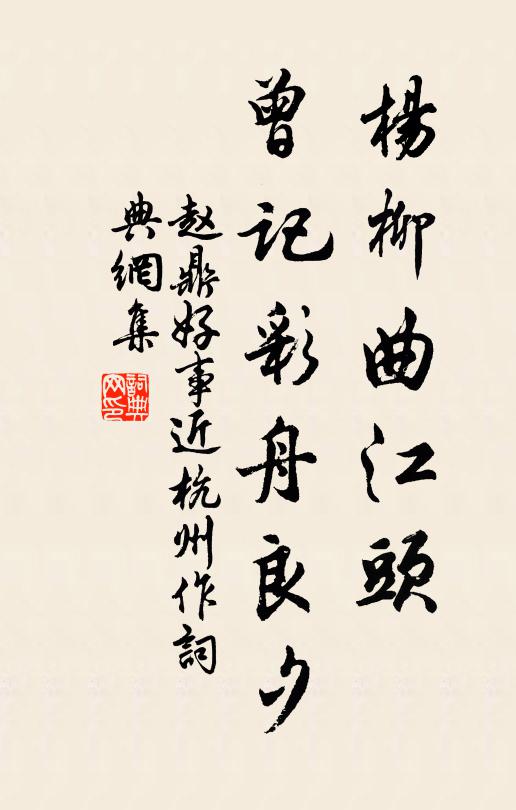 楊柳曲江頭
曾記彩舟良夕
赵鼎好事近杭州作詞
典網集
詞典
网印